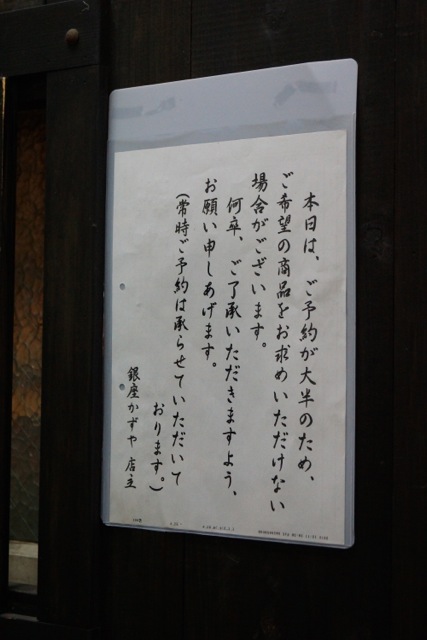 本日は、ご予約が大半のため、
ご希望の商品をお求めいただけない
場合がございます。
何卒、ご了承いただきますよう、
お願い申しあげます。
(常時ご予約は承らせていただいて
おります。)
銀座かずや 店主